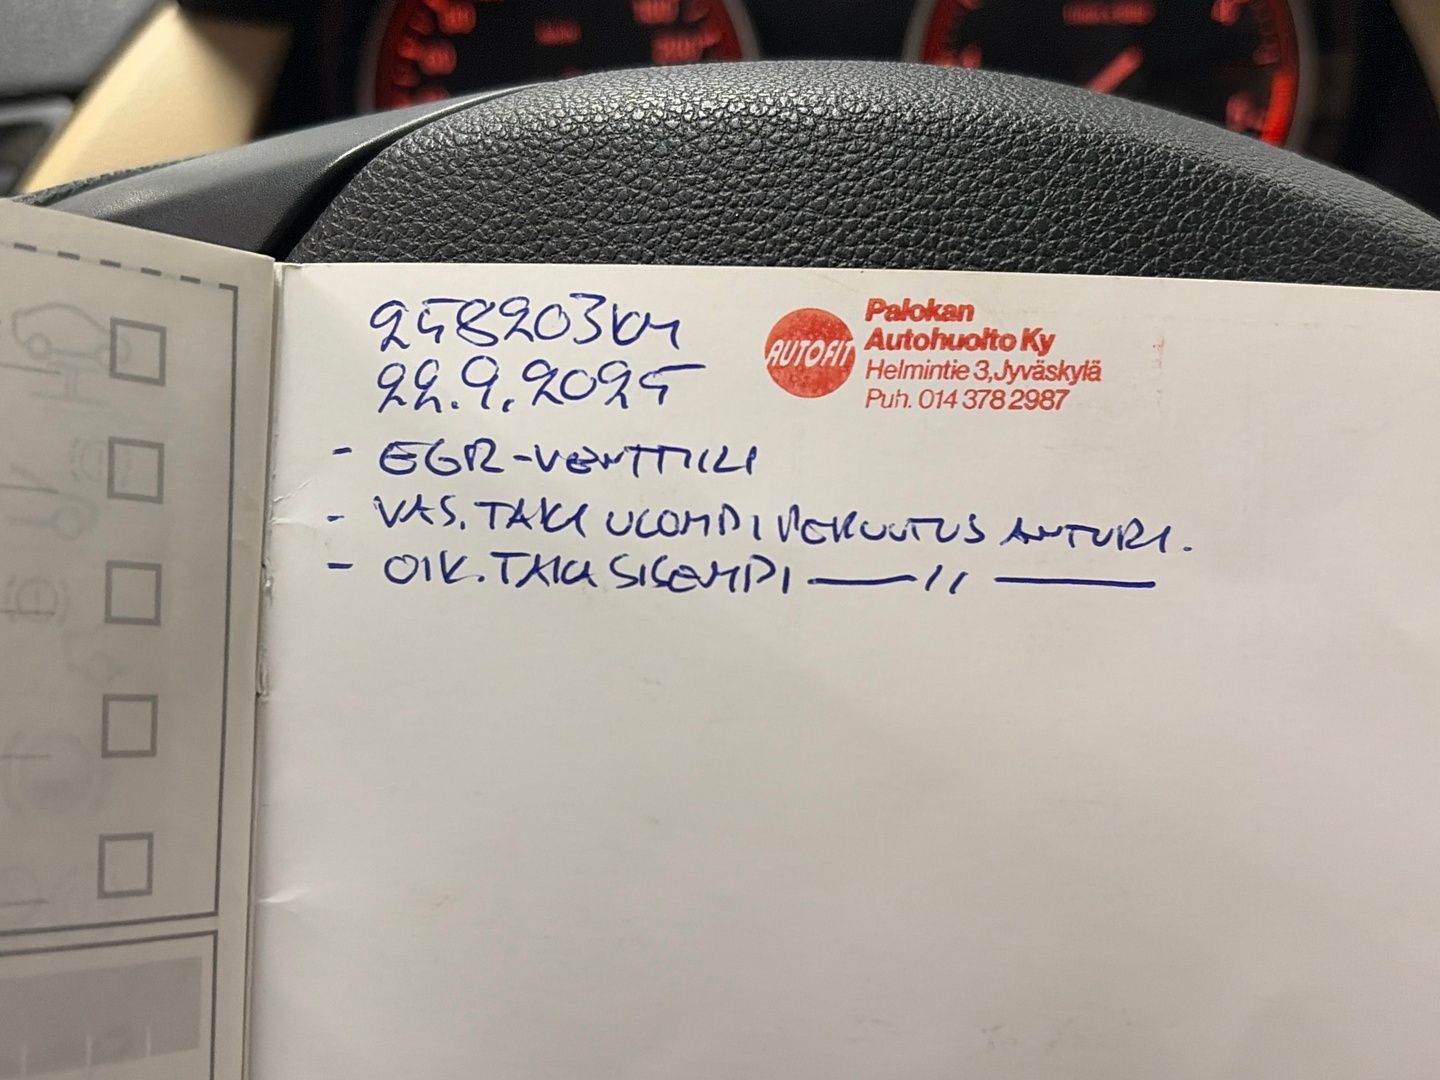 258203km
22.9.2025
- EGR-VENTTIILI
- VAS. TAKA ULOMPI PERUUTUS ANTURI.
- OIK. TAKA SISEMPI —— 〃 ——
AUTOFIT
Palokan
Autohuolto Ky
Helmintie 3, Jyväskylä
Puh. 014 378 2987